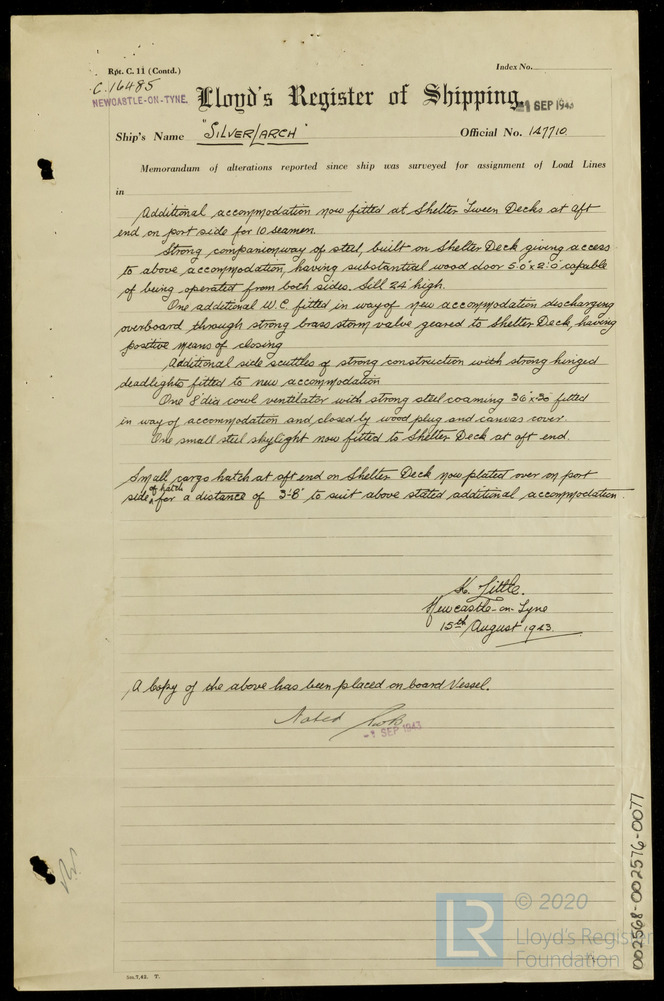 Rpt. C. 11 (Contd.)
Index No.
C.16485
NEWCASTLE-ON-TYNE.
Lloyd's Register of Shipping.
SEP 194
Ship's Name "SILVERLARCH"
Official No. 147710
Memorandum of alterations reported since ship was surveyed for assignment of Load Lines
in
Additional accommodation now fitted at Shelter 'Tween Decks at aft
end on port side for 10 seamen.
Strong companionway of steel, built on Shelter Deck, giving access
to above accommodation, having substantial wood door 5'0" x 2'0" capable
of being operated from both sides. Sill 24" high.
One additional W.C. fitted in way of new accommodation discharging
overboard through strong brass storm valve geared to Shelter Deck, having
positive means of closing
Additional side scuttles of strong construction with strong hinged
deadlights fitted to new accommodation
One 8" dia cowl ventilator with strong steel coaming 36" x 30 fitted
in way of accommodation and closed by wood plug and canvas cover.
One small steel skylight now fitted to Shelter Deck at aft end.
Small cargo hatch at aft end on Shelter Deck now plated over on port
side of hatch for a distance of 3'-8" to suit above stated additional accommodation.
K. Little.
Newcastle-on-Tyne
15th August 1943.
A Copy of the above has been placed on board Vessel.
Noted
-1 SEP 1943
002568-002576-0077
LR
© 2020
Lloyd's Register
Foundation
5m.7,42. T.